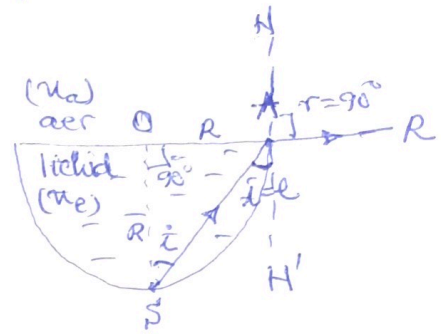 N
(n_a)
aer
O
R
A
r=90°
R
lichid
(n_e)
90°
R
i
i=l
N'
S